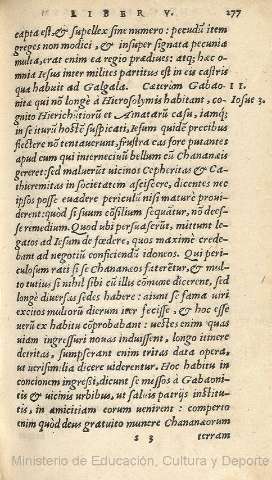 LIBER V. 277
capta est, & supellex sine numero: pecudũ item
greges non modici, & insuper signata pecunia
multa, erat enim ea regio præduues: atq; hæc o-
mnia Iesus inter milites partitus est in eis castris
qua habuit ad Galgala. Cæterùm Gabao- 11.
nitæ qui nõ longè à Hierosolymis habitant, co- Iosue 3.
gnito Hierichũtiorũ et Ainatarũ casu, iamq;
in se iturũ hostẽ suspicati, Iesum quidẽ precibus
flectere nõ tentauerunt, frustra eas fore putantes
apud eum qui internecinũ bellum cũ Chananæis
gereret: sed maluerũt uicinos Cepheritas & Ca-
thieremitas in societatem asciscere, dicentes nec
ipsos posse euadere periculũ nisi maturè proui-
derent: quòd si suum cõsilium sequãtur, nõ deés-
se remedium. Quod ubi persuaserũt, mittunt le-
gatos ad Iesum de fœdere, quos maximè crede-
bant ad negotiũ conficiendũ idoneos. Qui peri-
culosum rati si se Chananæos faterẽtur, & mul-
to tutius si nihil sibi cũ illis cõmune dicerent, sed
longè diuersas sedes habere: aiunt se fama uiri
exciros multorũ dierum iter fecisse, & hoc esse
uerũ ex habitu cõprobabant: uestes enim quas
uiam ingressuri nouas induissent, longo itinere
detritas, sumpserant enim tritas data opera,
ut uerisimilia dicere uiderentur. Hoc habitu in
concionem ingressi, dicunt se missos à Gabaoni-
tis & uicinis urbibus, ut saluis patrijs institu-
tis, in amicitiam eorum uenirent: comperto
enim quòd deus gratuito munere Chananæorum
s 3 terram
Ministerio de Educación, Cultura y Deporte